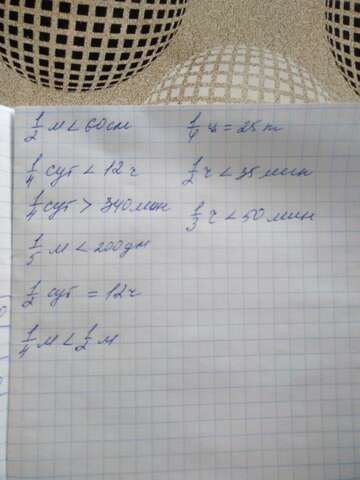 1/2 м < 60см
1/4 сут < 12ч
1/4 сут > 340мин
1/5 м < 200дм
1/2 сут = 12ч
1/4 м < 1/2 м
1/4 ц = 25
1/2 ч < 35мин
1/3 ч < 50мин